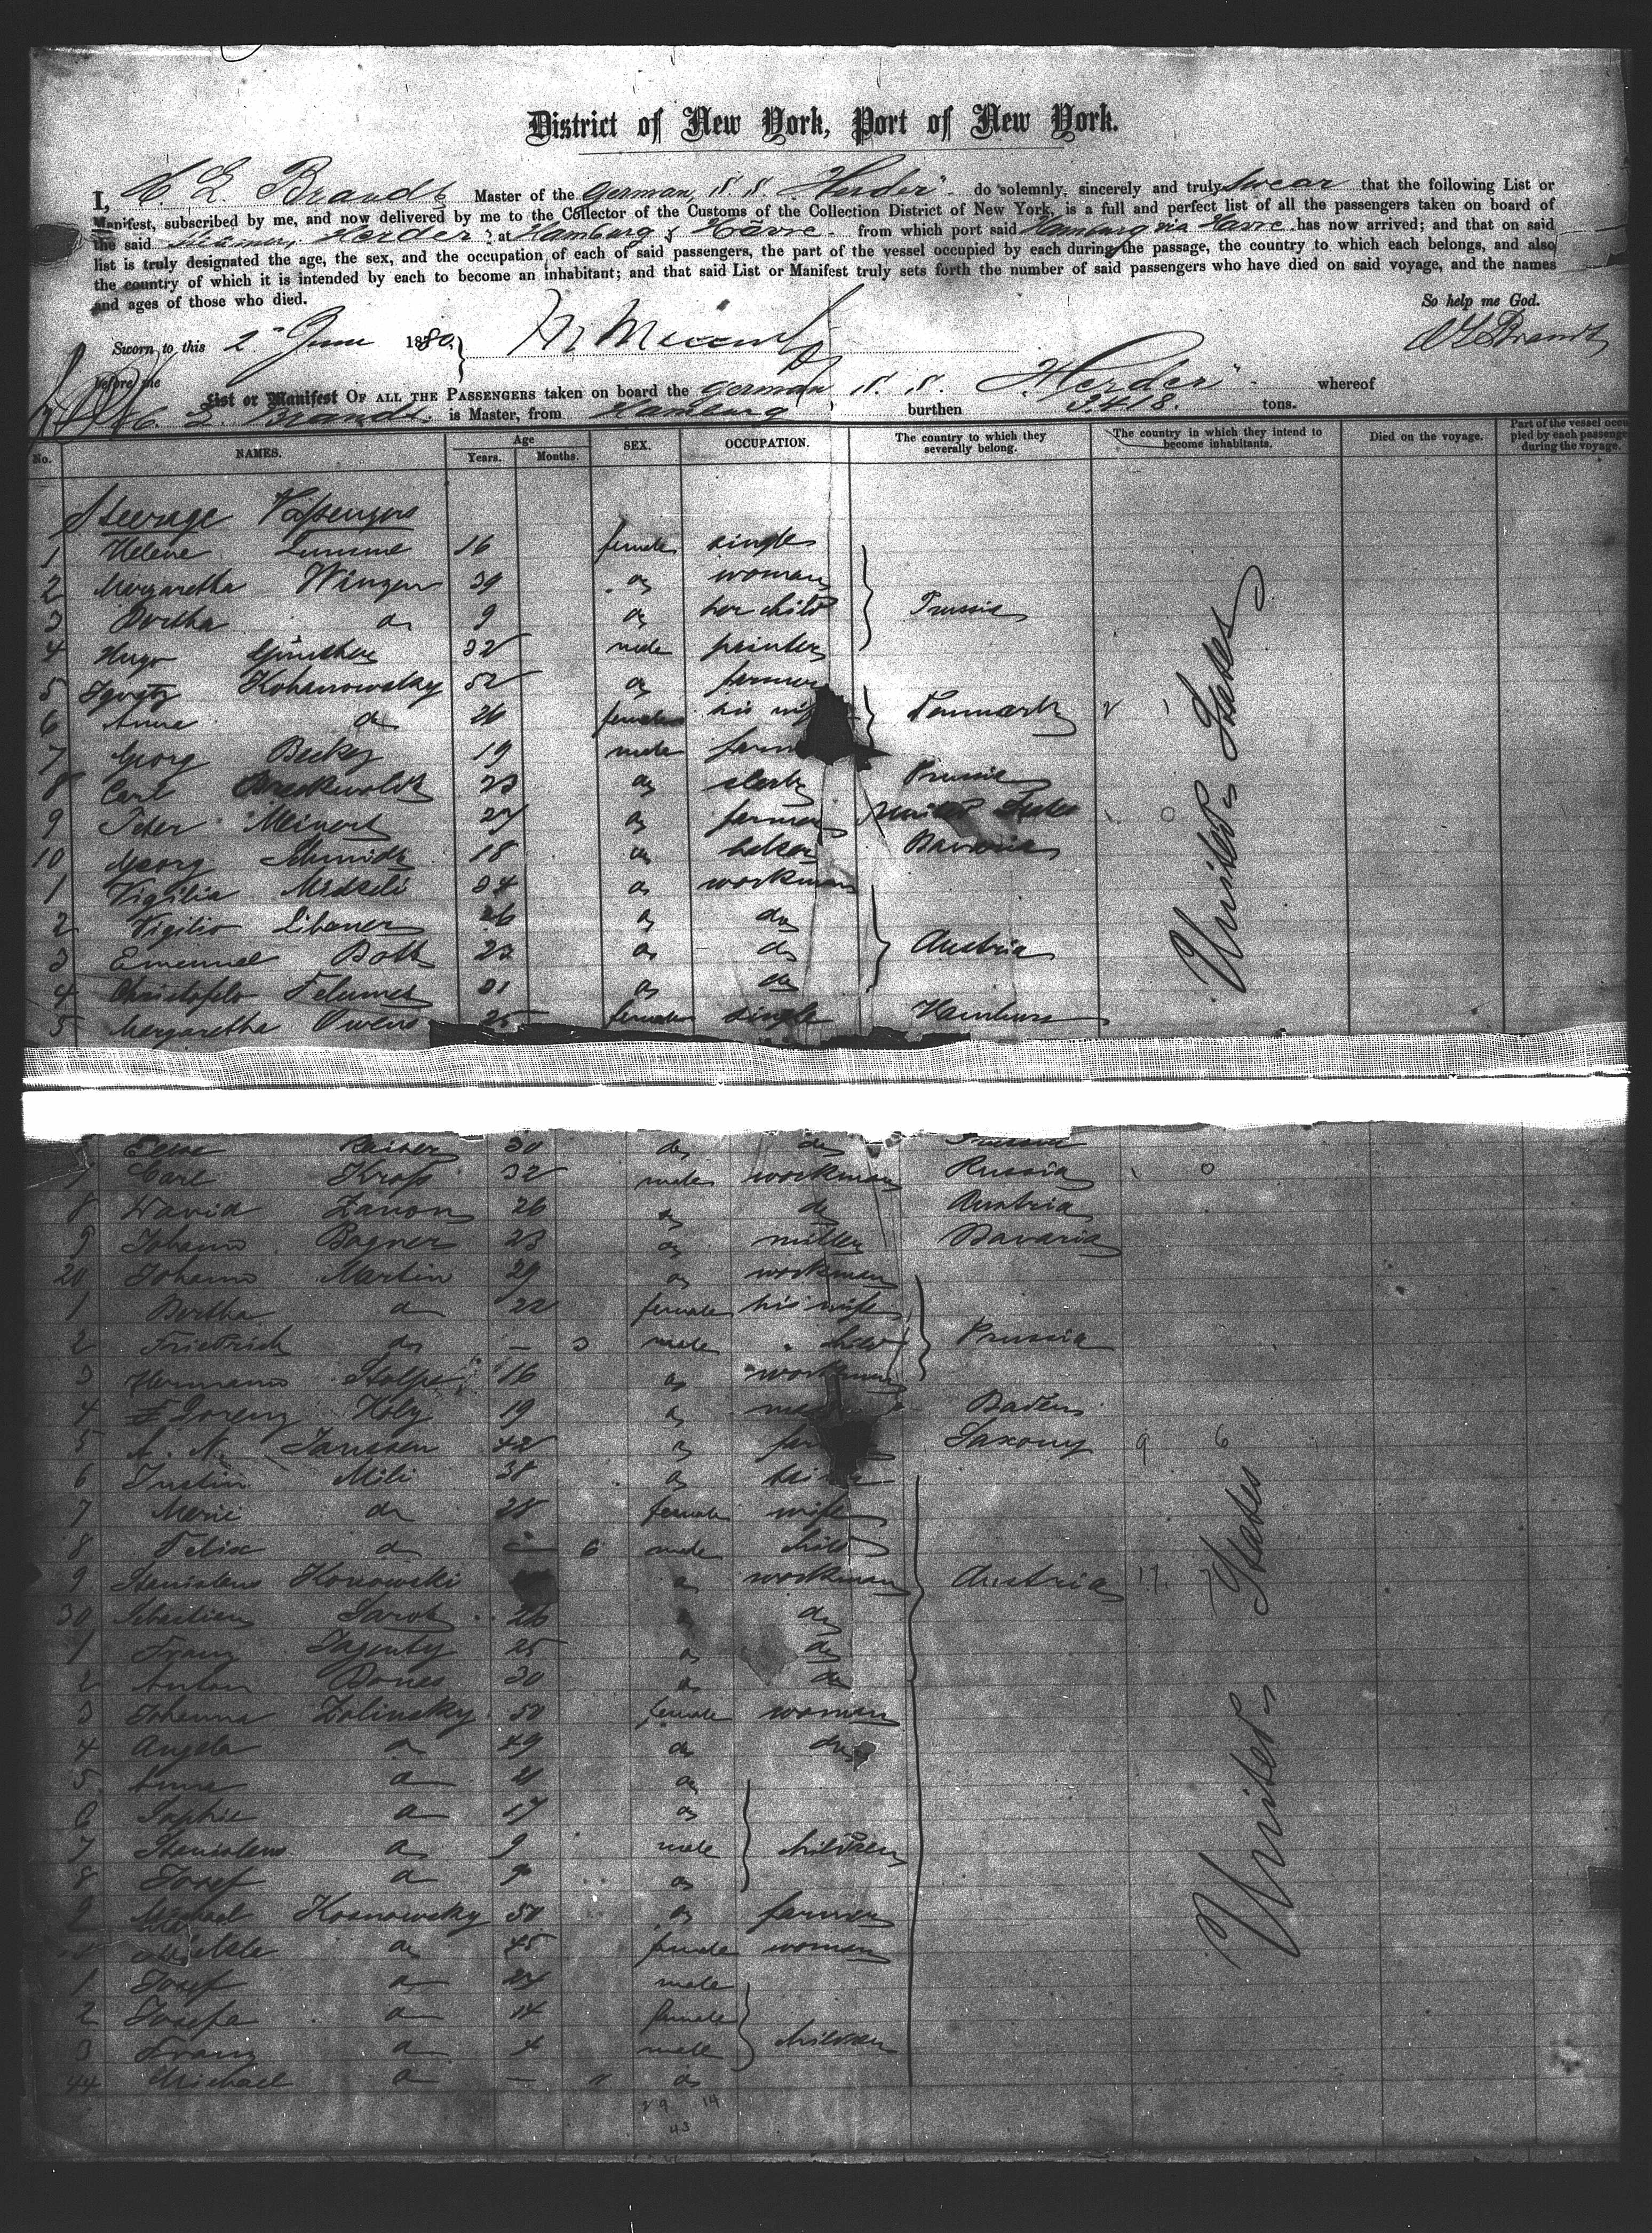 District of New York, Port of New York.
I, C. L. Brandt Master of the German, S. S. "Herder" do solemnly, sincerely and truly swear that the following List or
Manifest, subscribed by me, and now delivered by me to the Collector of the Customs of the Collection District of New York, is a full and perfect list of all the passengers taken on board of
the said steamer, Herder, at Hamburg & Havre from which port said Hamburg via Havre has now arrived; and that on said
list is truly designated the age, the sex, and the occupation of each of said passengers, the part of the vessel occupied by each during the passage, the country to which each belongs, and also
the country of which it is intended by each to become an inhabitant; and that said List or Manifest truly sets forth the number of said passengers who have died on said voyage, and the names
and ages of those who died.
So help me God.
Sworn to this 2 June 1880
Brandt
before me
List or Manifest OF ALL THE PASSENGERS taken on board the German S. S. "Herder" whereof
C. L. Brandt. is Master, from Hamburg burthen 3418. tons.
No. NAMES. Age Years. Months. SEX. OCCUPATION. The country to which they severally belong. The country in which they intend to become inhabitants. Died on the voyage. Part of the vessel occupied by each passenger during the voyage.
Steerage Passengers
1 Helene 16 female single
2 Margaretha Winzer 39 do woman
3 Bertha do 9 do her child Prussia
4 Hugo Günther 32 male printer
5 Kohanowsky 52 do farmer
6 Anna do 26 female his wife Denmark
7 Georg Becker 19 male farm
8 Carl 23 do clerk Prussia
9 Peter Meinert 27 do farmer United States
10 Georg Schmidt 18 do Bavaria
1 Vigilia 34 do workman
2 Vigilio Libaner 26 do do
3 Emanuel Bott 23 do do Austria
4 Christofolo 31 do do
5 Margaretha Owens 25 female single Hamburg
United States
Kaiser 30 do do Prussia
7 Carl Kross 32 male workman Russia
8 David Zanon 26 do do Austria
9 Johann Bagner 23 do miller Bavaria
20 Johann Martin 29 do workman
1 Bertha do 22 female his wife
2 Friedrich do — 3 male " child Prussia
3 Hermann Stolpe 16 do workman
4 Lorenz Holy 19 do Baden
5 A. N. Janssen 42 do Saxony
6 Justin Mili 38 do
7 Marie do 28 female wife
8 Felix do — 6 male child
9 Stanislaus Konowski do workman Austria
30 Sebastian Sarot 26 do
1 Franz 25 do do
2 Anton Bones 30 do do
3 Johanna Zolinsky 50 female woman
4 Angela do 49 do do
5 Anna do 21 do
6 Sophie do 17 do
7 Stanislaus do 9 male children
8 Josef do 9 do
9 Michael Kosnowsky 50 do farmer
do 45 female woman
1 Josef do 24 male
2 Josefa do 14 female
3 Franz do 4 male children
44 Michael do — do
United States
29 14
43